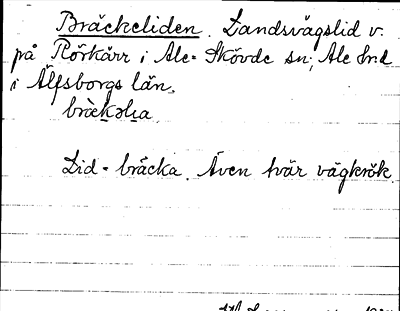 Bräckeliden. Landsvägslid v.
på Rörkärr i Ale-Skövde sn; Ale hrd
i Älfsborgs län.
brækəlia
Lid = bräcka. Även tvär vägkrök.